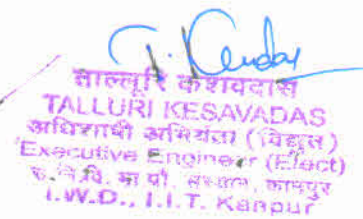 ताल्लूरि केशवदास
TALLURI KESAVADAS
अधिशाषी अभियंता (विद्युत)
Executive Engineer (Elect)
कानपुर
I.W.D., I.I.T. Kanpur